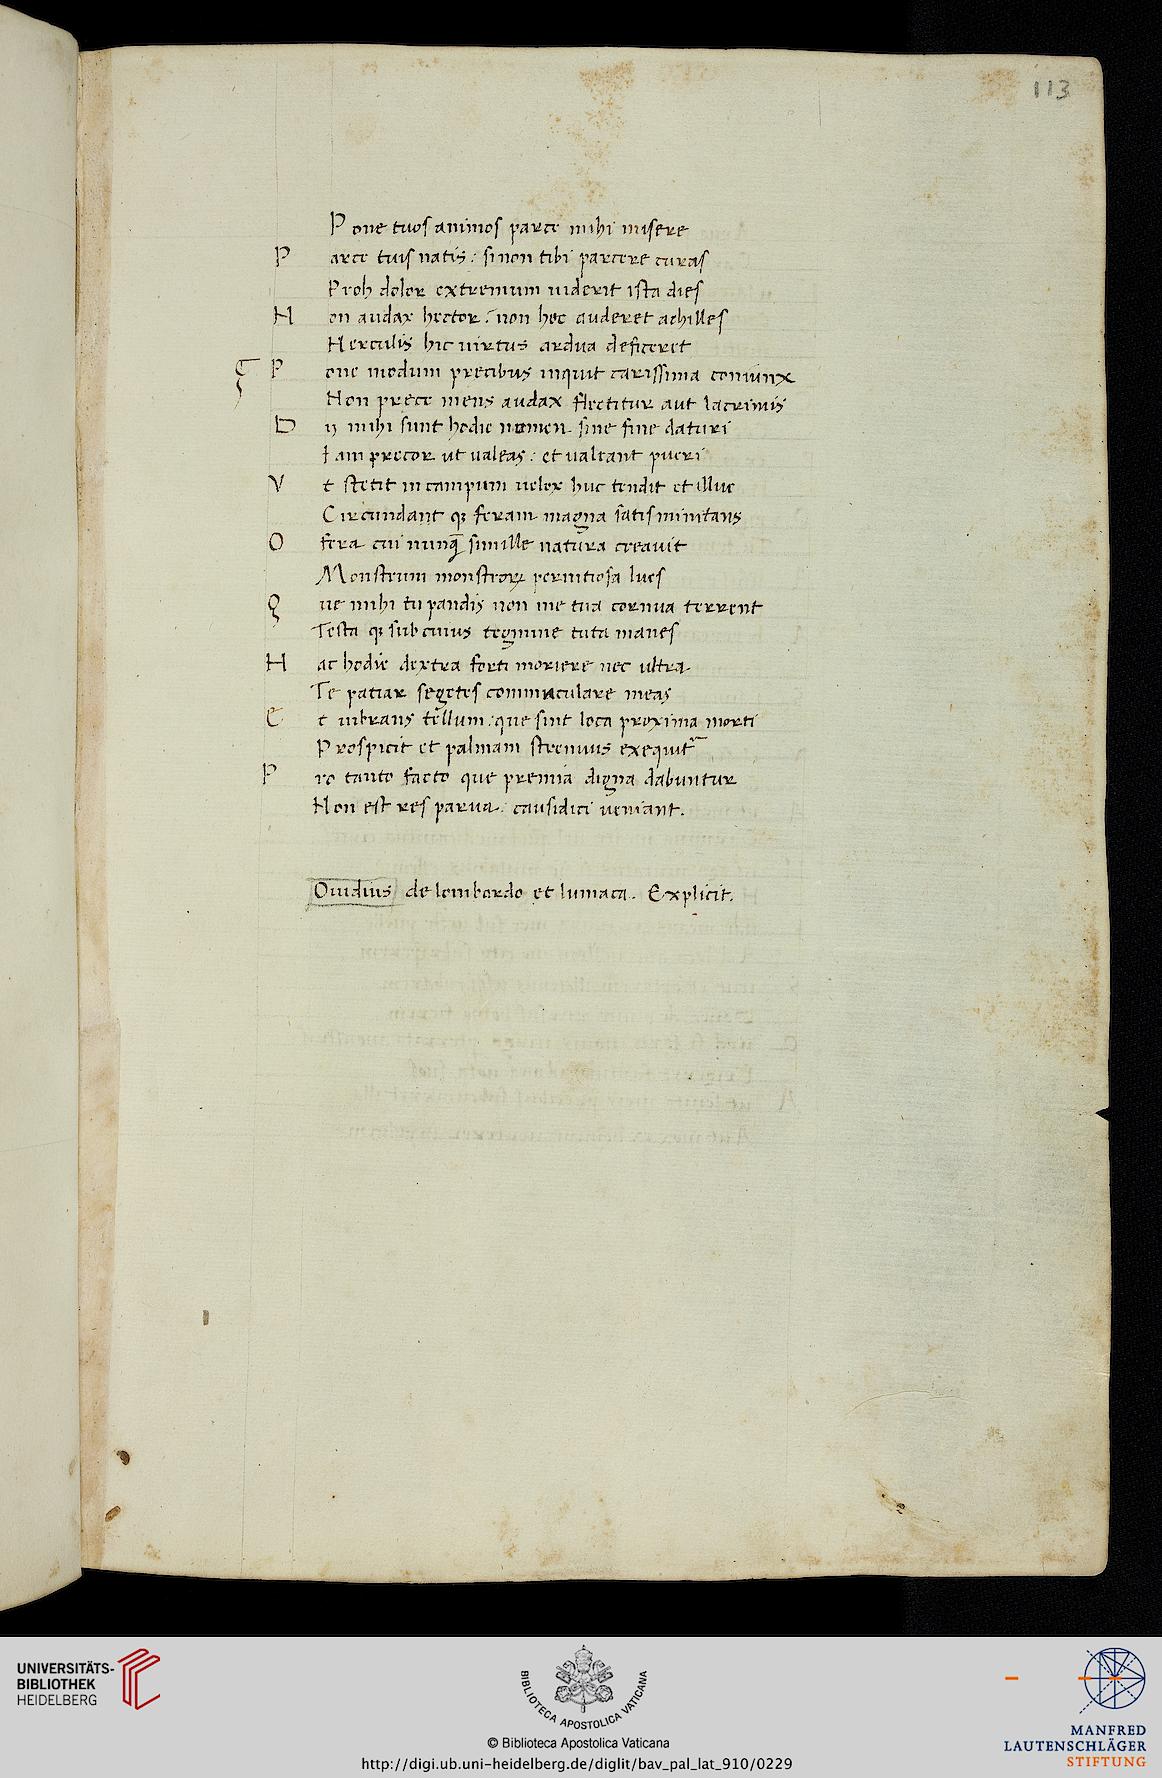 113
Pone tuos animos parce mihi misere
Parce tuis natis: si non tibi parcere curas
Proh dolor extremum uiderit ista dies
Non audax hector: non hoc auderet achilles
Herculis hic uirtus ardua deficeret
Pone modum precibus inquit carissima coniunx
Non prece mens audax flectitur aut lacrimis
Dii mihi sunt hodie nomen sine fine daturi
Iam precor ut ualeas: et ualeant pueri
Vt stetit in campum uelox huc tendit et illuc
Circundant qꝫ feram magna satis minitans
O fera cui nunqꝫ simille natura creauit
Monstrum monstroꝝ pernitiosa lues
Que mihi tu pandis non me tua cornua terrent
Testa qꝫ sub cuius tegmine tuta manes
Hac hodie dextra forti moriere nec ultra
Te patiar segetes commaculare meas
Et uibrans tellum: que sint loca proxima morti
Prospicit et palmam strenuus exequit᷑
Pro tanto facto que premia digna dabuntur
Non est res parua: causidici ueniant.
Ouidius de lombardo et lumaca. Explicit.
UNIVERSITÄTS-
BIBLIOTHEK
HEIDELBERG
BIBLIOTECA APOSTOLICA VATICANA
© Biblioteca Apostolica Vaticana
http://digi.ub.uni-heidelberg.de/diglit/bav_pal_lat_910/0229
MANFRED
LAUTENSCHLÄGER
STIFTUNG